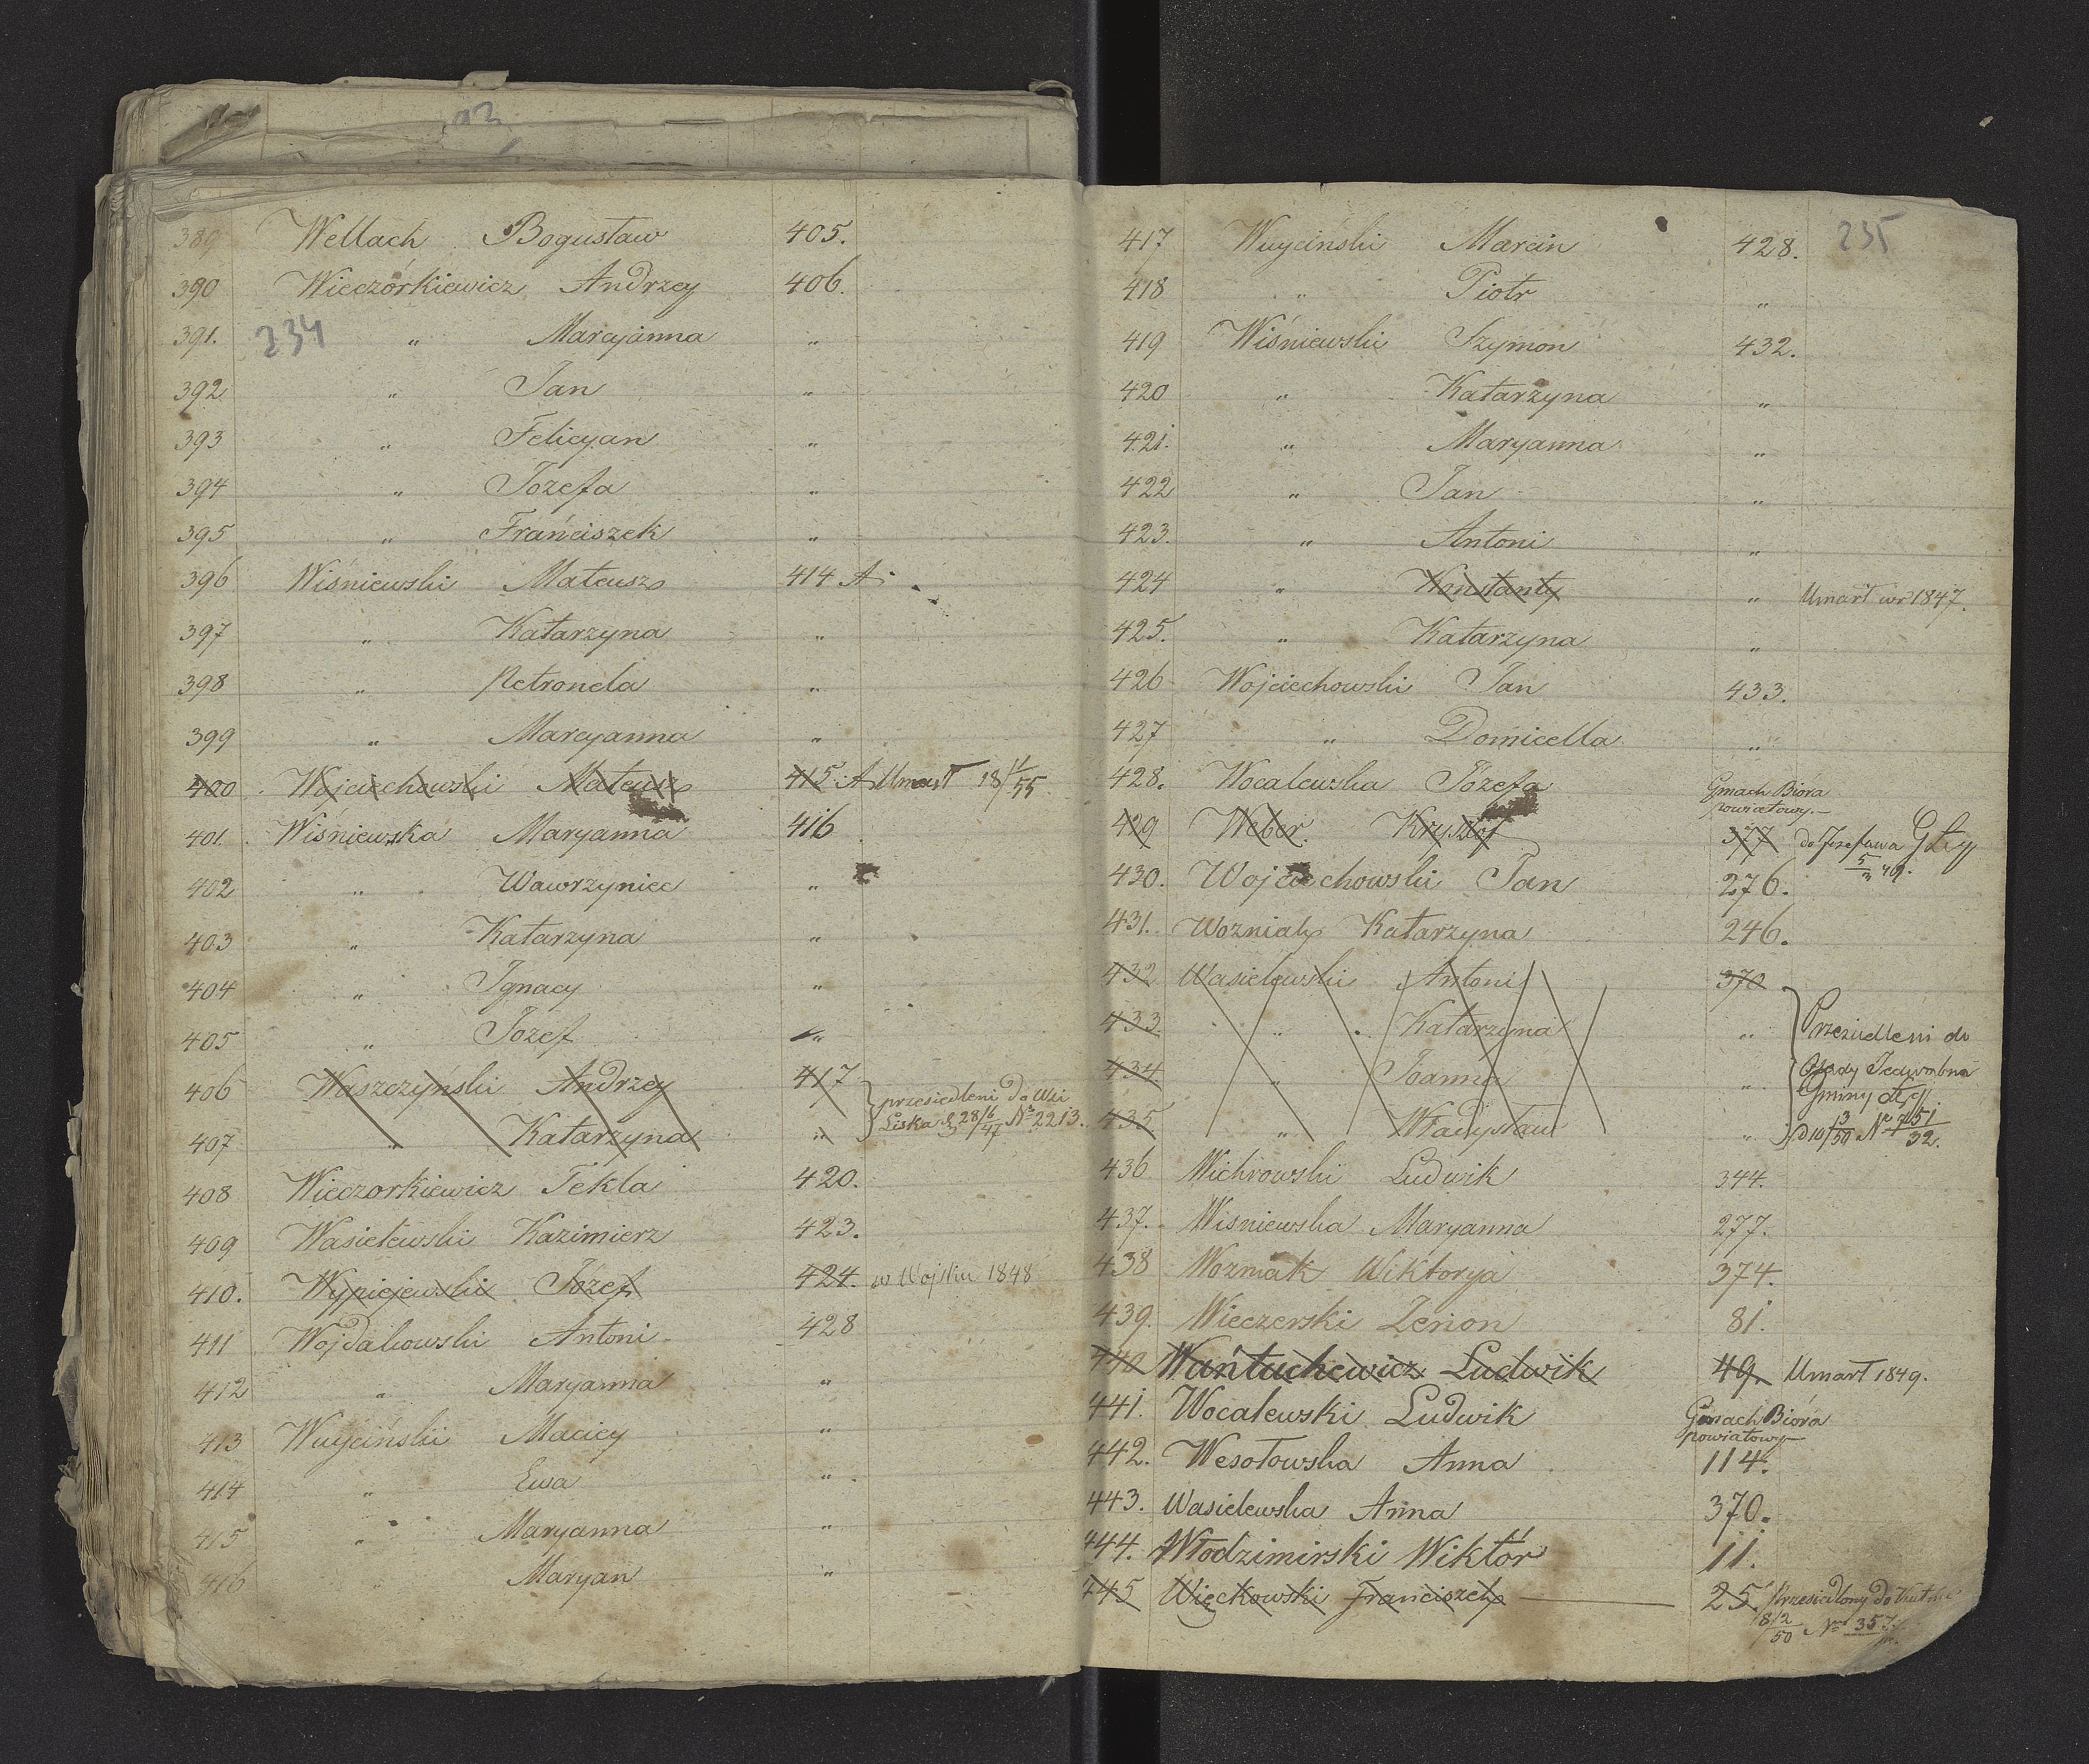 93
389 Wellach Bogusław 405.
390 Wieczórkiewicz Andrzey 406.
234
391. " Maryanna "
392 " Jan "
393 " Felicyan "
394 " Józefa "
395 " Franciszek "
396 Wiśniewski Mateusz 414 A
397 " Katarzyna "
398 " Petronela "
399 " Maryanna "
400 Wojciechowski Mateusz 415 A Umarł 18 11/55
401. Wiśniewska Maryanna 416
402 " Wawrzyniec "
403 " Katarzyna "
404 " Ignacy "
405 " Józef "
406 Waszczyński Andrzey 417
407 " Katarzyna "
przesiedleni do Wsi
Liska d 28/6 47 No 2213.
408 Wieczorkiewicz Tekla 420.
409 Wasielewski Kazimierz 423.
410. Wypiejewski Józef 424. w Wojsku 1848
411 Wojdakowski Antoni 428
412 " Maryanna "
413 Wuyciński Maciey "
414 " Ewa "
415 " Maryanna "
416 " Maryan "
235
417 Wuyciński Marcin 428.
418 " Piotr "
419 Wiśniewski Szymon 432.
420 " Katarzyna "
421. " Maryanna "
422 " Jan "
423. " Antoni "
424 " Konstanty " Umarł w r 1847.
425. " Katarzyna "
426 Wojciechowski Jan 433.
427 " Domicella "
428. Wocalewska Józefa Gmach Bióra
powiatowy.
429 Weber Krysztof 377 do Józefowa
5/3 49.
430. Wojciechowski Jan 276.
431. Wozniak Katarzyna 246.
432 Wasielewski Antoni 370
433 " Katarzyna "
434 " Joanna "
435 " Władysław "
Przesiedleni do
Osady Jedwabna
Gminy
d 10 3/50 No
436 Wichrowski Ludwik 344.
437. Wisniewska Maryanna 277.
438 Wozniak Wiktorya 374.
439. Wieczerski Zenon 81.
440 Wańtuchewicz Ludwik 49. Umarł 1849.
441. Wocalewski Ludwik Gmach Bióra
powiatowy
442. Wesołowska Anna 114.
443. Wasielewska Anna 370.
444. Włodzimirski Wiktór 11.
445 Więckowski Franciszek 25. Przesiedlony do Kutna
8/2 50 No 357